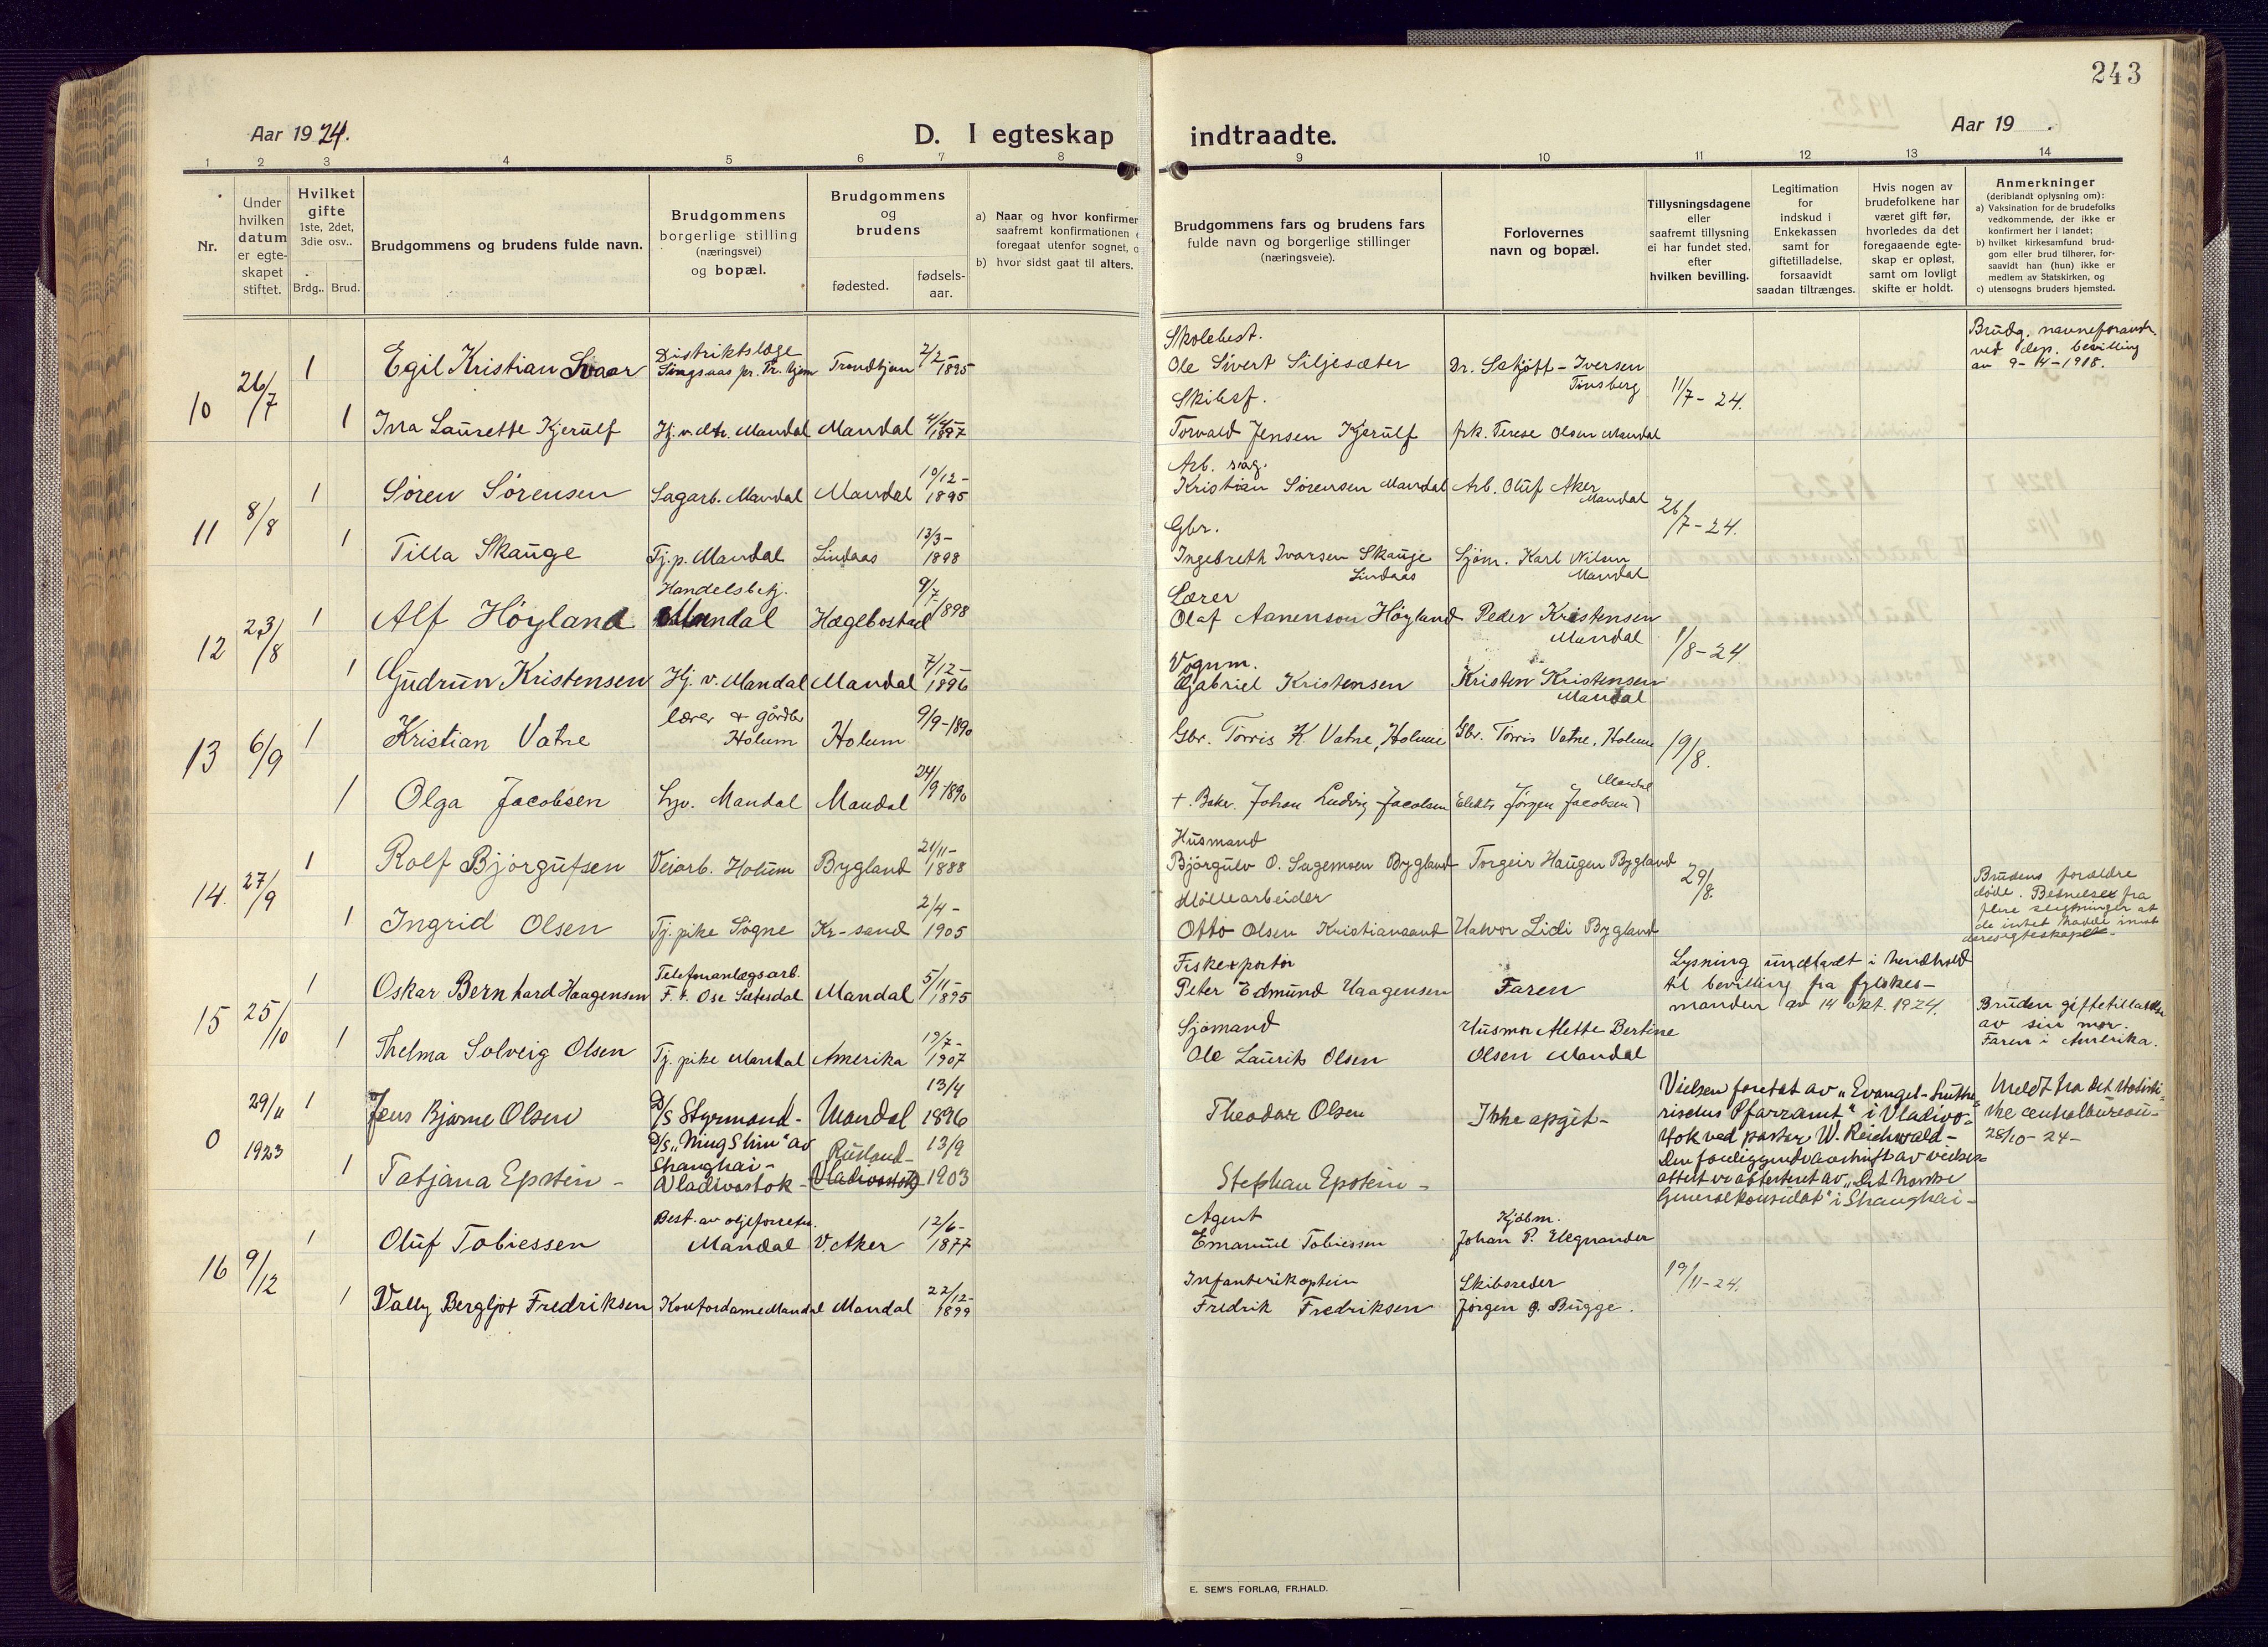 243
Aar 1924.
D. I egteskap indtraadte.
Aar 19 .
1 2 3 4 5 6 7 8 9 10 11 12 13 14
Nr.
Under
hvilken
datum
er egte-
skapet
stiftet.
Hvilket
gifte
1ste, 2det,
3die osv..
Brdg.. Brud.
Brudgommens og brudens fulde navn.
Brudgommens
borgerlige stilling
(næringsvei)
og bopæl.
Brudgommens
og
brudens
fødested.
fødsels-
aar.
a) Naar og hvor konfirmer
saafremt konfirmationen
foregaat utenfor sognet,
b) hvor sidst gaat til alters.
Brudgommens fars og brudens fars
fulde navn og borgerlige stillinger
(næringsveie).
Forlovernes
navn og bopæl.
Tillysningsdagene
eller
saafremt tillysning
ei har fundet sted.
efter
hvilken bevilling.
Legitimation
for
indskud i
Enkekassen
samt for
giftetilladelse,
forsaavidt
saadan tiltrænges.
Hvis nogen av
brudefolkene har
været gift før,
hvorledes da det
foregaaende egte-
skap er opløst,
samt om lovligt
skifte er holdt.
Anmerkninger
(deriblandt oplysning om):
a) Vaksination for de brudefolks
vedkommende, der ikke er
konfirmert her i landet;
b) hvilket kirkesamfund brud-
gom eller brud tilhører, for-
saavidt han (hun) ikke er
medlem av Statskirken, og
c) utensogns bruders hjemsted.
10
26/7
1
Egil Kristian Svaar
Distriktslæge
Singsaas pr. Tr. hjem
Trondhjem
2/2-
1895
Skolebest.
Ole Sivert Siljesæter
Dr. Schjöff-Iversen
Tønsberg
11/7-24.
Brudg. navneforandr.
ved dep. bevilling
av 9-4-1918.
1
Ina Laurette Kjerulf
Hj.v. dtr. Mandal
Mandal
4/4-
1897
Skibsf.
Torvald Jensen Kjerulf
frk. Terese Olsen Mandal
11
8/8
1
Søren Sørensen
Sagarb. Mandal
Mandal
10/12-
1895
Arb. sag.
Kristian Sørensen Mandal
Arb. Oluf Aker
Mandal
26/7-24.
1
Tilla Skauge
Tj.p. Mandal
Lindaas
13/3-
1898
Gbr.
Ingebreth Ivarsen Skauge
Lindaas
Sjøm. Karl Nilsen
Mandal
12
23/8
1
Alf Höyland
Handelsbetj.
Mandal
Hægebostad
9/7
1898
Lærer
Olaf Aanenson Höyland
Peder Kristensen
Mandal
1/8-24.
1
Gudrun Kristensen
Hj. v. Mandal
Mandal
7/12-
1896
Vognm.
Gabriel Kristensen
Kristen Kristensen
Mandal
13
6/9
1
Kristian Vatne
lærer & gårdbr
Holum
Holum
9/9-1890
Gbr. Tørris K. Vatne, Holum
Gbr. Tørris Vatne, Holum
19/8.
1
Olga Jacobsen
Hjv. Mandal
Mandal
24/9-1890
+. Baker. Johan Ludvig Jacobsen
Elektr. Jørgen Jacobsen
Mandal
14.
27/9
1
Rolf Bjørgufsen
Veiarb. Holum
Bygland
21/11-
1888
Husmand
Bjørgulv O. Sagemoen Bygland
Torgeir Haugen Bygland
29/8.
Brudens forældre
døde. Bevnelser fra
flere slegtninger at
de intet hadde imot
deres egteskap.
1
Ingrid Olsen
Tj. pike Sögne
Kr-sand
2/4-
1905
Möllearbeider
Otto Olsen Kristianssand
Halvor Lidi Bygland
15
25/10
1
Oskar Bernhard Haagensen
Telefonanlægsarb.
F. t. Ose Sætesdal
Mandal
5/11-
1895
Fiskexportør
Peter Edmund Haagensen
Faren
Lysning undladt i henhold
til bevilling fra fylkes-
manden av 14 okt. 1924.
Bruden giftetilladelse
av sin mor.
Faren i Amerika.
1
Thelma Solveig Olsen
Tj. pike Mandal
Amerika
19/7-
1907
Sjømand
Ole Laurits Olsen
Husmor Mette Bertine
Olsen Mandal
0
29/11
1923
1
Jens Bjarne Olsen
D/S Styrmand-
D/S „Ming Shin" av
Shanghai-
Mandal
13/4
1896
Theodor Olsen
Ikke opgit-
Vielsen foretat av „Evangel-Luthe-
risches Pfarramt" i Vladivo-
stok ved pastor W. Reichwald-
Den foreliggende avskrift av vielses-
attest er attestert av „Det Norske
Generalkonsulat" i Shanghai-
Meldt fra det statisti-
ske centralbureau-
28/10-24-
1
Tatjana Epstein-
Vladivostok-
Rusland-
(Vladivostok)
13/9
1903
Stephan Epstein-
16
9/12
1
Oluf Tobiessen
Best. av oljeforretn.
Mandal
V. Aker
12/6-
1877
Agent
Emanuel Tobiessen
Kjøbm.
Johan P. Elegnander
19/11-24.
1
Vally Bergljot Fredriksen
Kontordame Mandal
Mandal
22/12-
1899
Infanterikaptein
Fredrik Fredriksen
Skibsreder
Jørgen G. Bugge.
E. SEM'S FORLAG, FR.HALD.